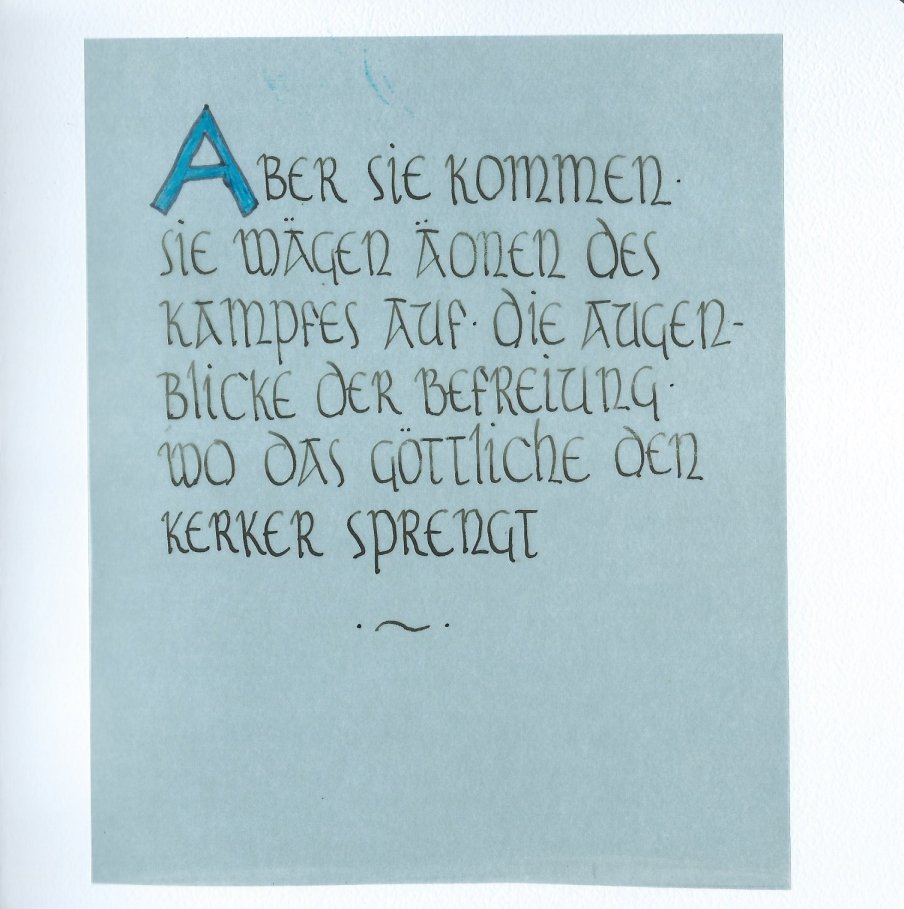 Aber sie kommen·
sie wägen Äonen des
Kampfes auf· die Augen-
blicke der Befreiung·
wo das Göttliche den
Kerker sprengt
· ~ ·